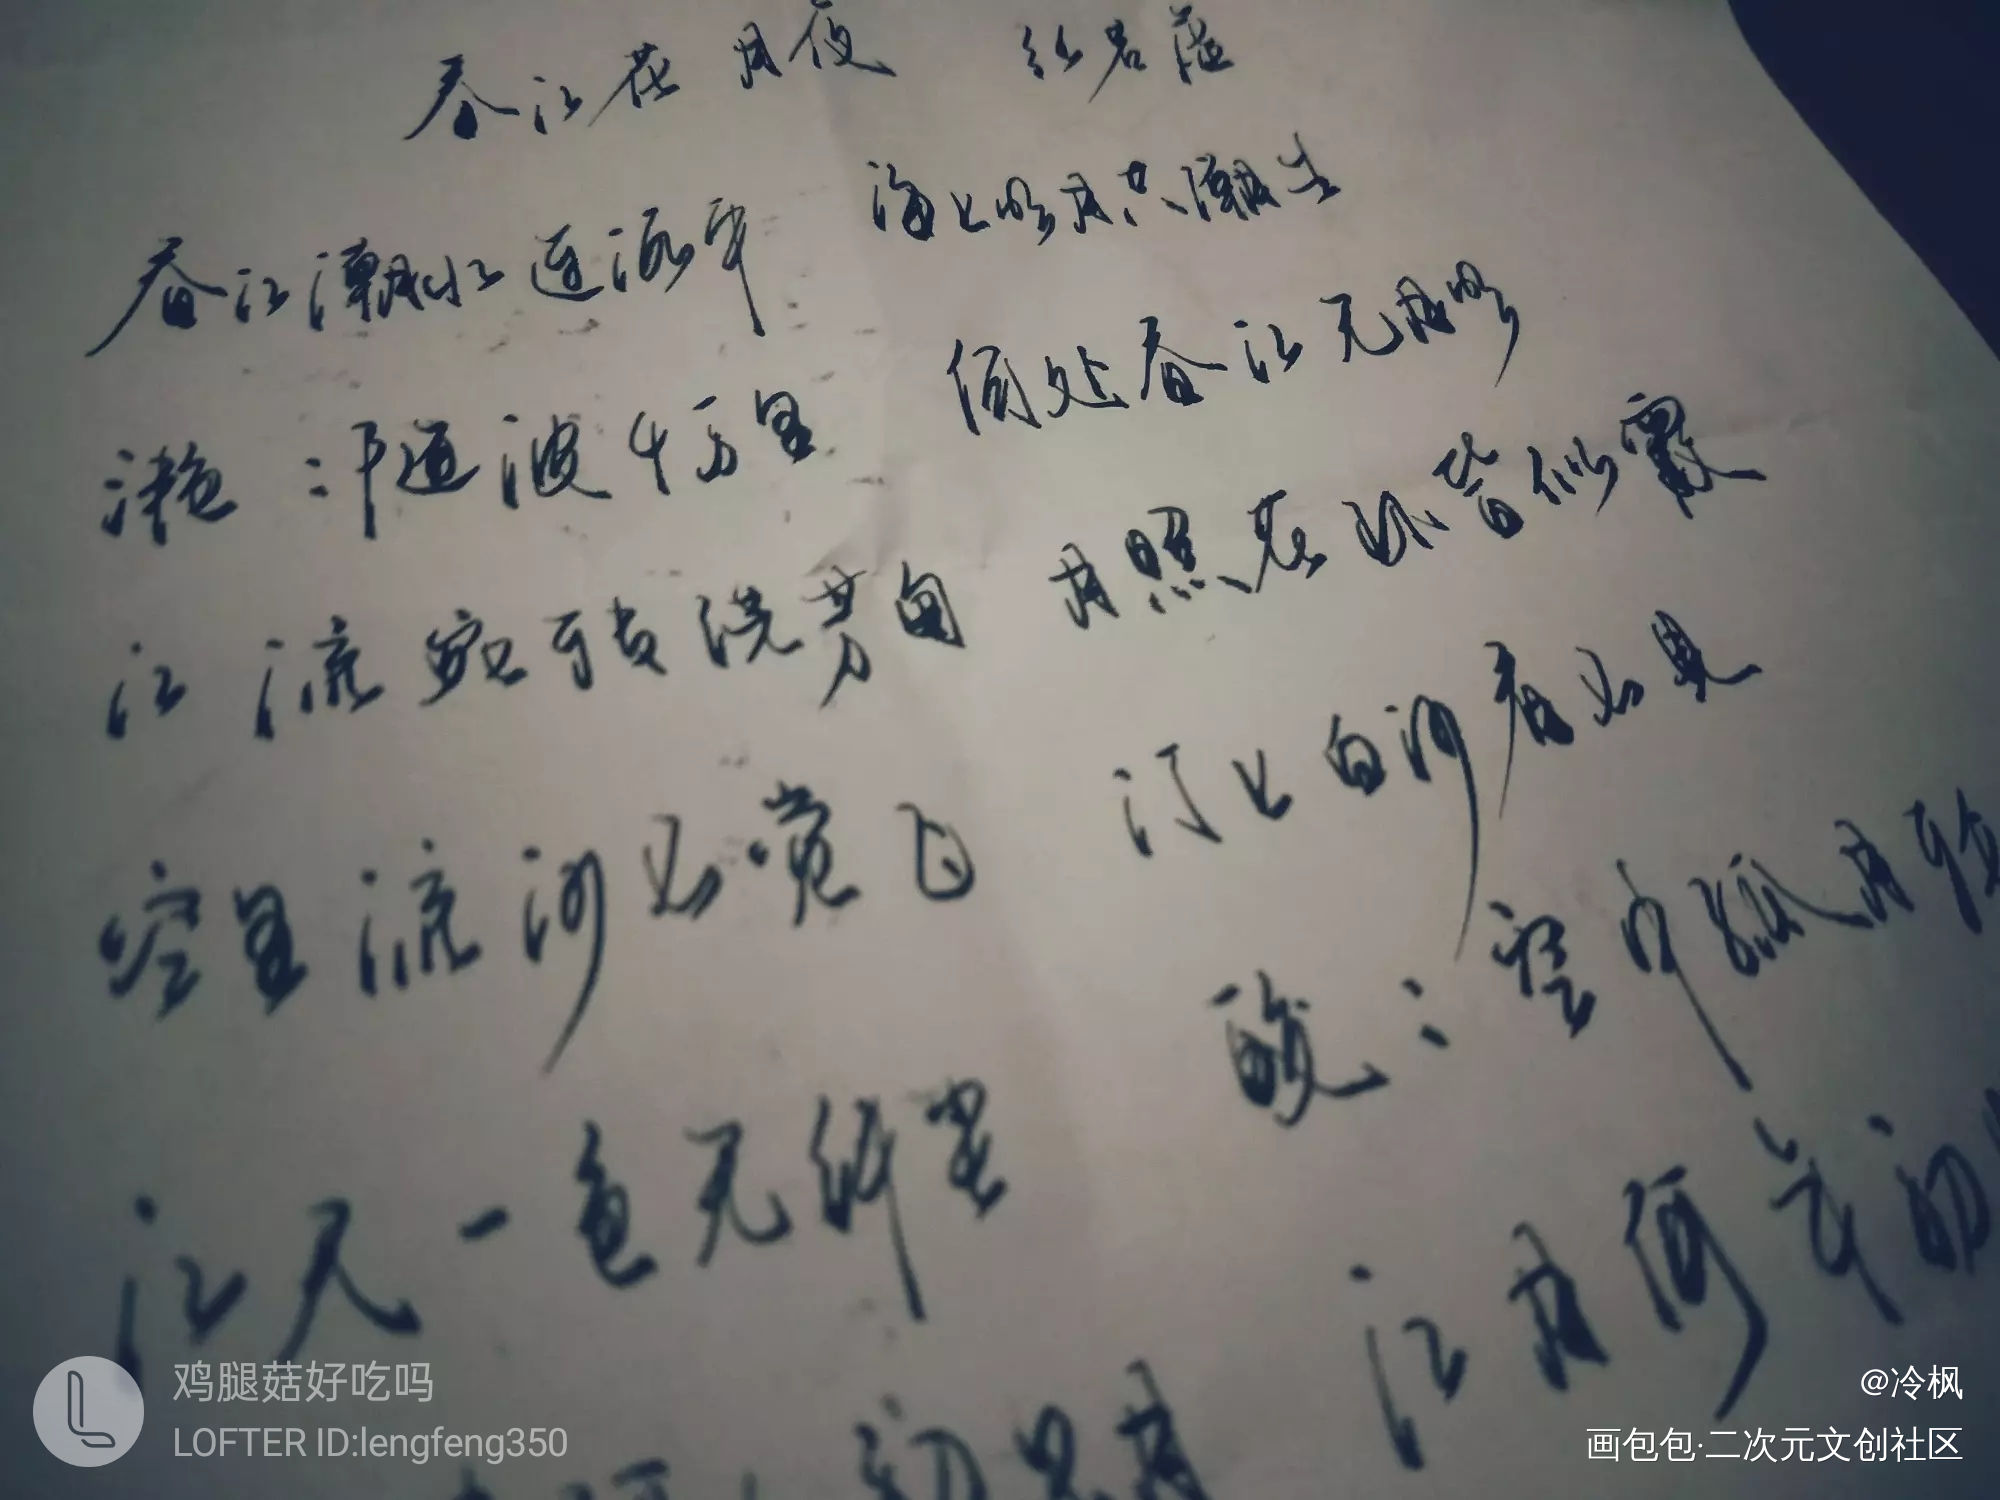 春江花月夜 张若虚
春江潮水连海平 海上明月共潮生
滟滟随波千万里 何处春江无月明
江流宛转绕芳甸 月照花林皆似霰
空里流霜不觉飞 汀上白沙看不见
江天一色无纤尘 皎皎空中孤月轮
江月何年初
初见月
鸡腿菇好吃吗
LOFTER ID:lengfeng350
@冷枫
画包包·二次元文创社区